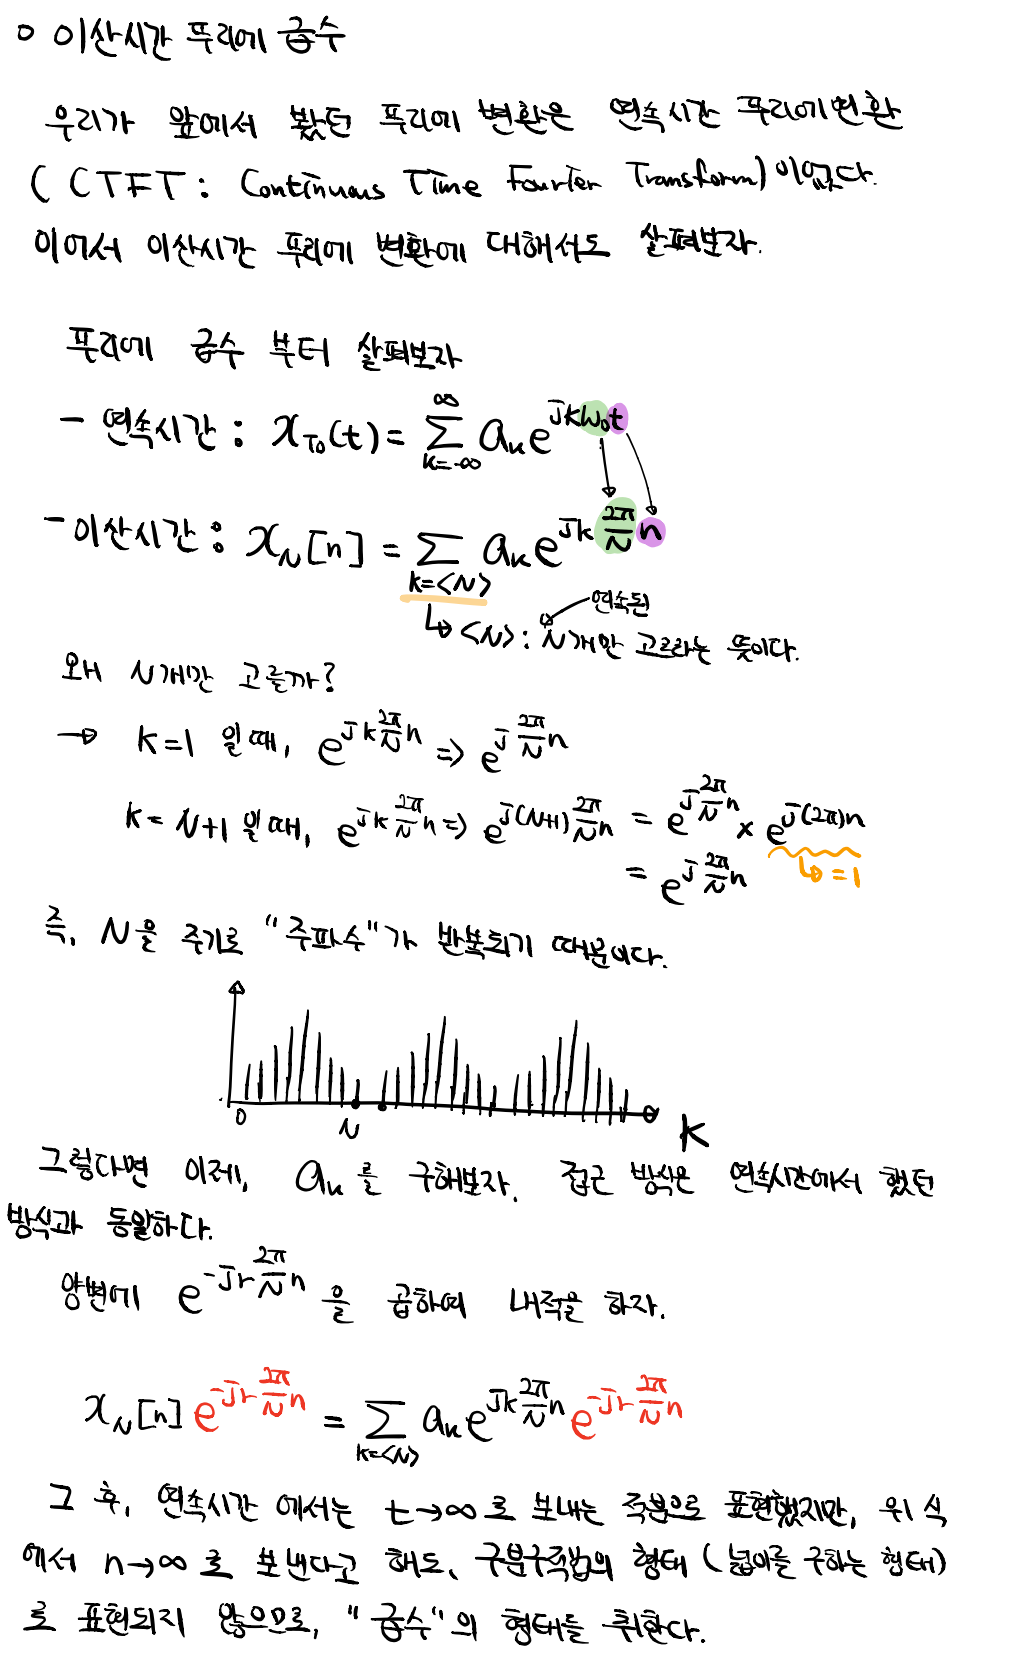 ○ 이산시간 푸리에 급수
우리가 앞에서 봤던 푸리에 변환은 연속시간 푸리에변환
( CTFT : Continuous Time Fourier Transform) 이었다.
이어서 이산시간 푸리에 변환에 대해서도 살펴보자.
푸리에 급수 부터 살펴보자
- 연속시간 : x_{T₀}(t) = ∑_{k=-∞}^{∞} a_k e^{jkω₀t}
- 이산시간 : x_N[n] = ∑_{k=<N>} a_k e^{jk\frac{2π}{N}n}
연속된
↳ <N> : N개만 고르라는 뜻이다.
왜 N개만 고를까?
→ k=1 일때, e^{jk\frac{2π}{N}n} => e^{j\frac{2π}{N}n}
k=N+1 일때, e^{jk\frac{2π}{N}n} => e^{j(N+1)\frac{2π}{N}n} = e^{j\frac{2π}{N}n} × e^{j(2π)n}
= e^{j\frac{2π}{N}n}
↳ =1
즉, N을 주기로 "주파수"가 반복되기 때문이다.
0 N K
그렇다면 이제, a_k 를 구해보자. 접근 방식은 연속시간에서 했던
방식과 동일하다.
양변에 e^{-jr\frac{2π}{N}n} 을 곱하여 내적을 하자.
x_N[n] e^{-jr\frac{2π}{N}n} = ∑_{k=<N>} a_k e^{jk\frac{2π}{N}n} e^{-jr\frac{2π}{N}n}
그 후, 연속시간 에서는 t→∞로 보내는 적분으로 표현했지만, 위 식
에서 n→∞로 보낸다고 해도, 구분구적법의 형태 (넓이를 구하는 형태)
로 표현되지 않으므로, "급수"의 형태를 취한다.